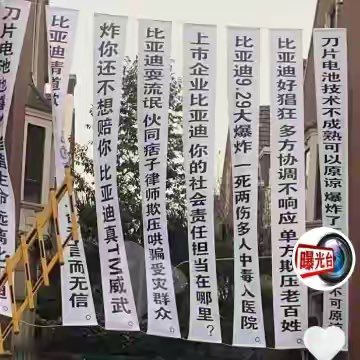 刀片电池技术不成熟可以原谅 爆炸了
不可原
比亚迪好猖狂 多方协调不响应 单方欺压老百姓。
比亚迪9 29大爆炸 一死两伤多人中毒入医院。
上市企业比亚迪 你的社会责任担当在哪里？
比亚迪耍流氓 伙同痞子律师欺压哄骗受灾群众
炸你还不想赔你 比亚迪真TM威武
比亚迪请道
而无信。
刀片电池
生命远离比
曝光台